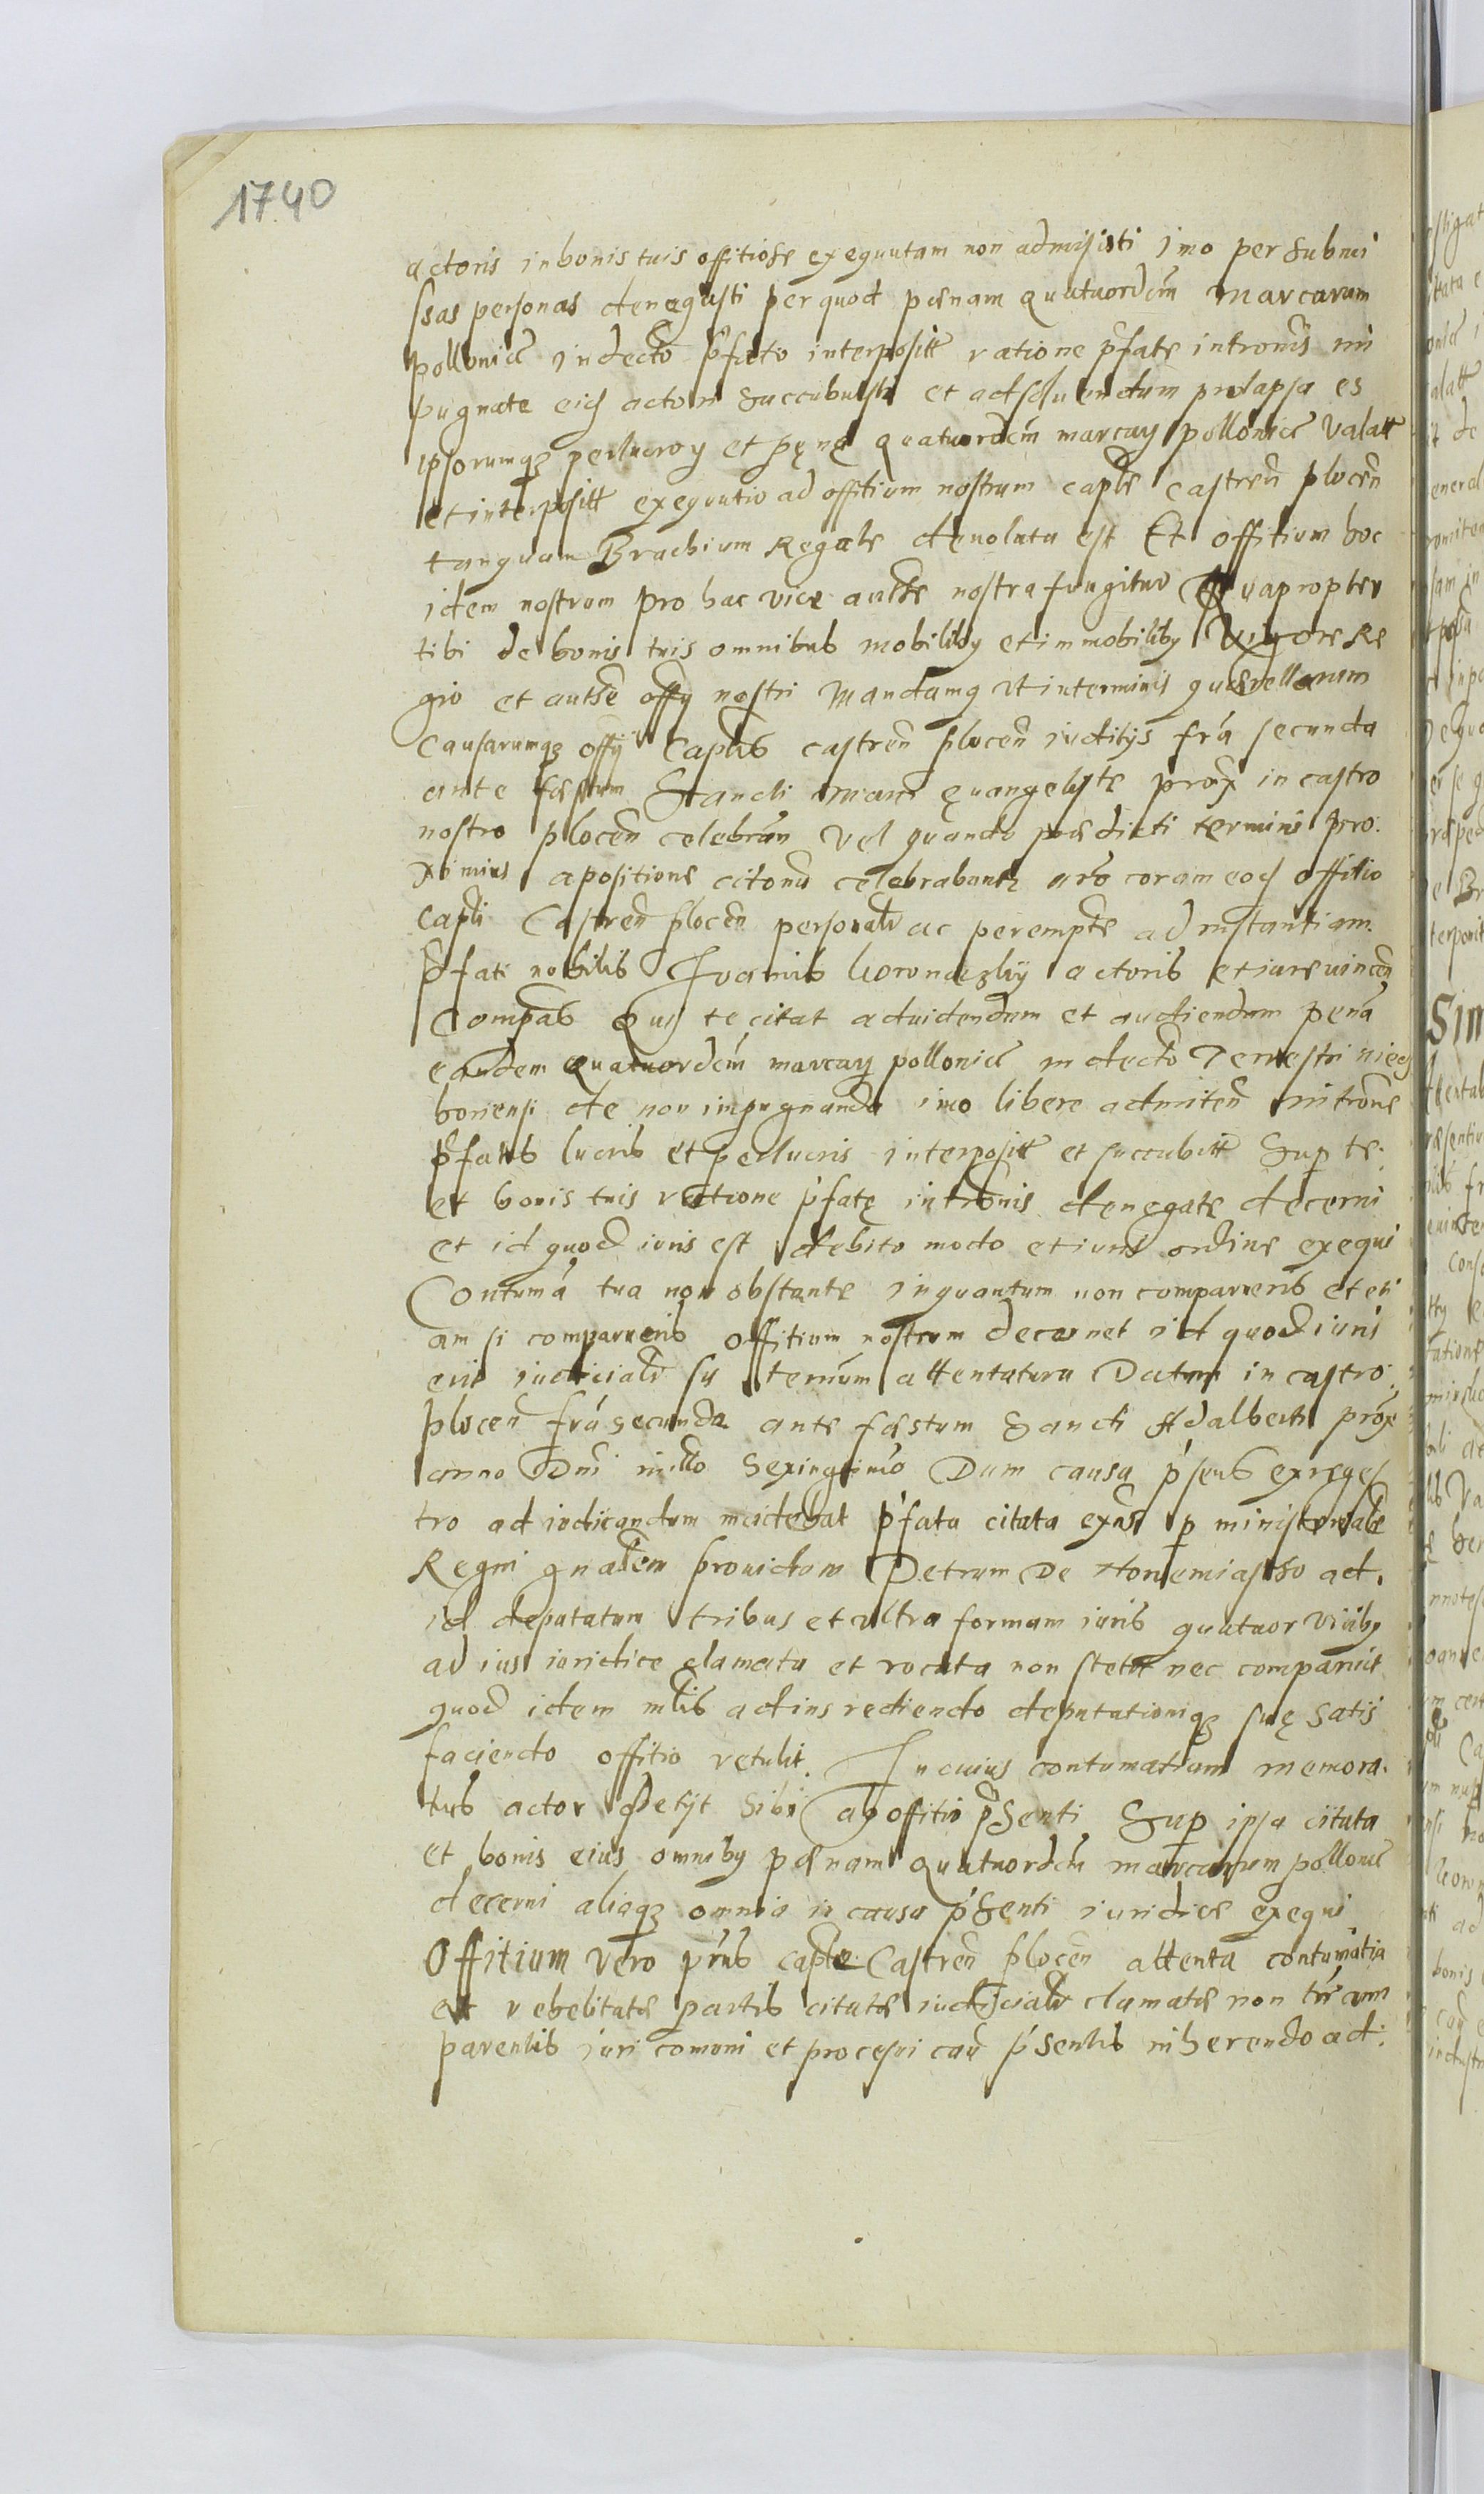 1740
actoris in bonis tuis offitiose exequutam non admisisti imo per submi
ssas personas denegasti per quod pænam quatuordecim marcarum
pollonicł in decto pfato interpositt ratione pfatæ intromis im
pugnatæ eid actori succubuisti et ad solvendum prolapsa es
ipsorumqз perlucroꝝ et pęnę quatuordecim marcaꝝ pollonicł Valatt
et interpositt exequutio ad offitium nostrum captle castren plocen
tanquam Brachium Regale devoluta est Et offitium hoc
idem nostrum pro hac vice autte nostra fungitur Quapropter
tibi de bonis tuis omnibus mobiliby et immobiliby Vigore Re
gio et autte offy nostri Mandamq ut in terminis quærellarum
causarumqз offÿ Captlis castren plocen iuditÿs fria secunda
ante fæstum Sancti Marci Evangelystæ prox in castro
nostro plocen celebran vel quando prædicti termini pro:
ximius a positione citonis celebrabuntz uro coram eod offitio
Captli Castren plocen personalr ac perempte ad instantiam
pfati nobilis Ioannis actoris et iurevincen
Compas Qui te citat ad videndum et audiendum pena
eandem quatuordecim marcaꝝ pollonicł in decto Terrestri
bonensi de non impugnanda imo libere admitten intrōne
pfatis lucris et perlucris interpositt et succubitt Sup te
et bonis tuis ratione pfatę intromis denegatæ decerni
et id quod iuris est debito modo et iuris ordine exequi
Contuma tua non obstante inquantum non comparueris et eti
am si comparueris offitium nostrum decernet id quod iuris
erit iudicialr sy termum attentatura Datum in castro
plocen fria secunda ante fæstum Sancti Adalberti prox
anno Dni millo Sexingtimo Dum causa psens ex reges
tro ad iudicandum incidebat pfata citata exns p ministerialē
Regni gnalem providum Petrum De Nowemiasto ad
id deputatum tribus et ultra formam iuris quatuor viciby
ad ius iuridice clamata et vocata non stetit nec comparuit
quod idem mlis ad ius rediendo deputationiqз suę satis
faciendo offitio retulit. In cuius contumatiam memora:
tus actor petÿt sibi ab offitio pSenti Sup ipsa citata
et bonis eius omniby pænam quatuordecim marcarum pollonicł
decerni aliaqз omnia in causa pSenti iuridicæ exequi
Offitium vero pns captle Castren plocen attenta contumatia
et rebelitate partis citatæ iudicialr clamatæ non tn com
parentis iuri comoni et procesui cau pSentis inherendo ad: